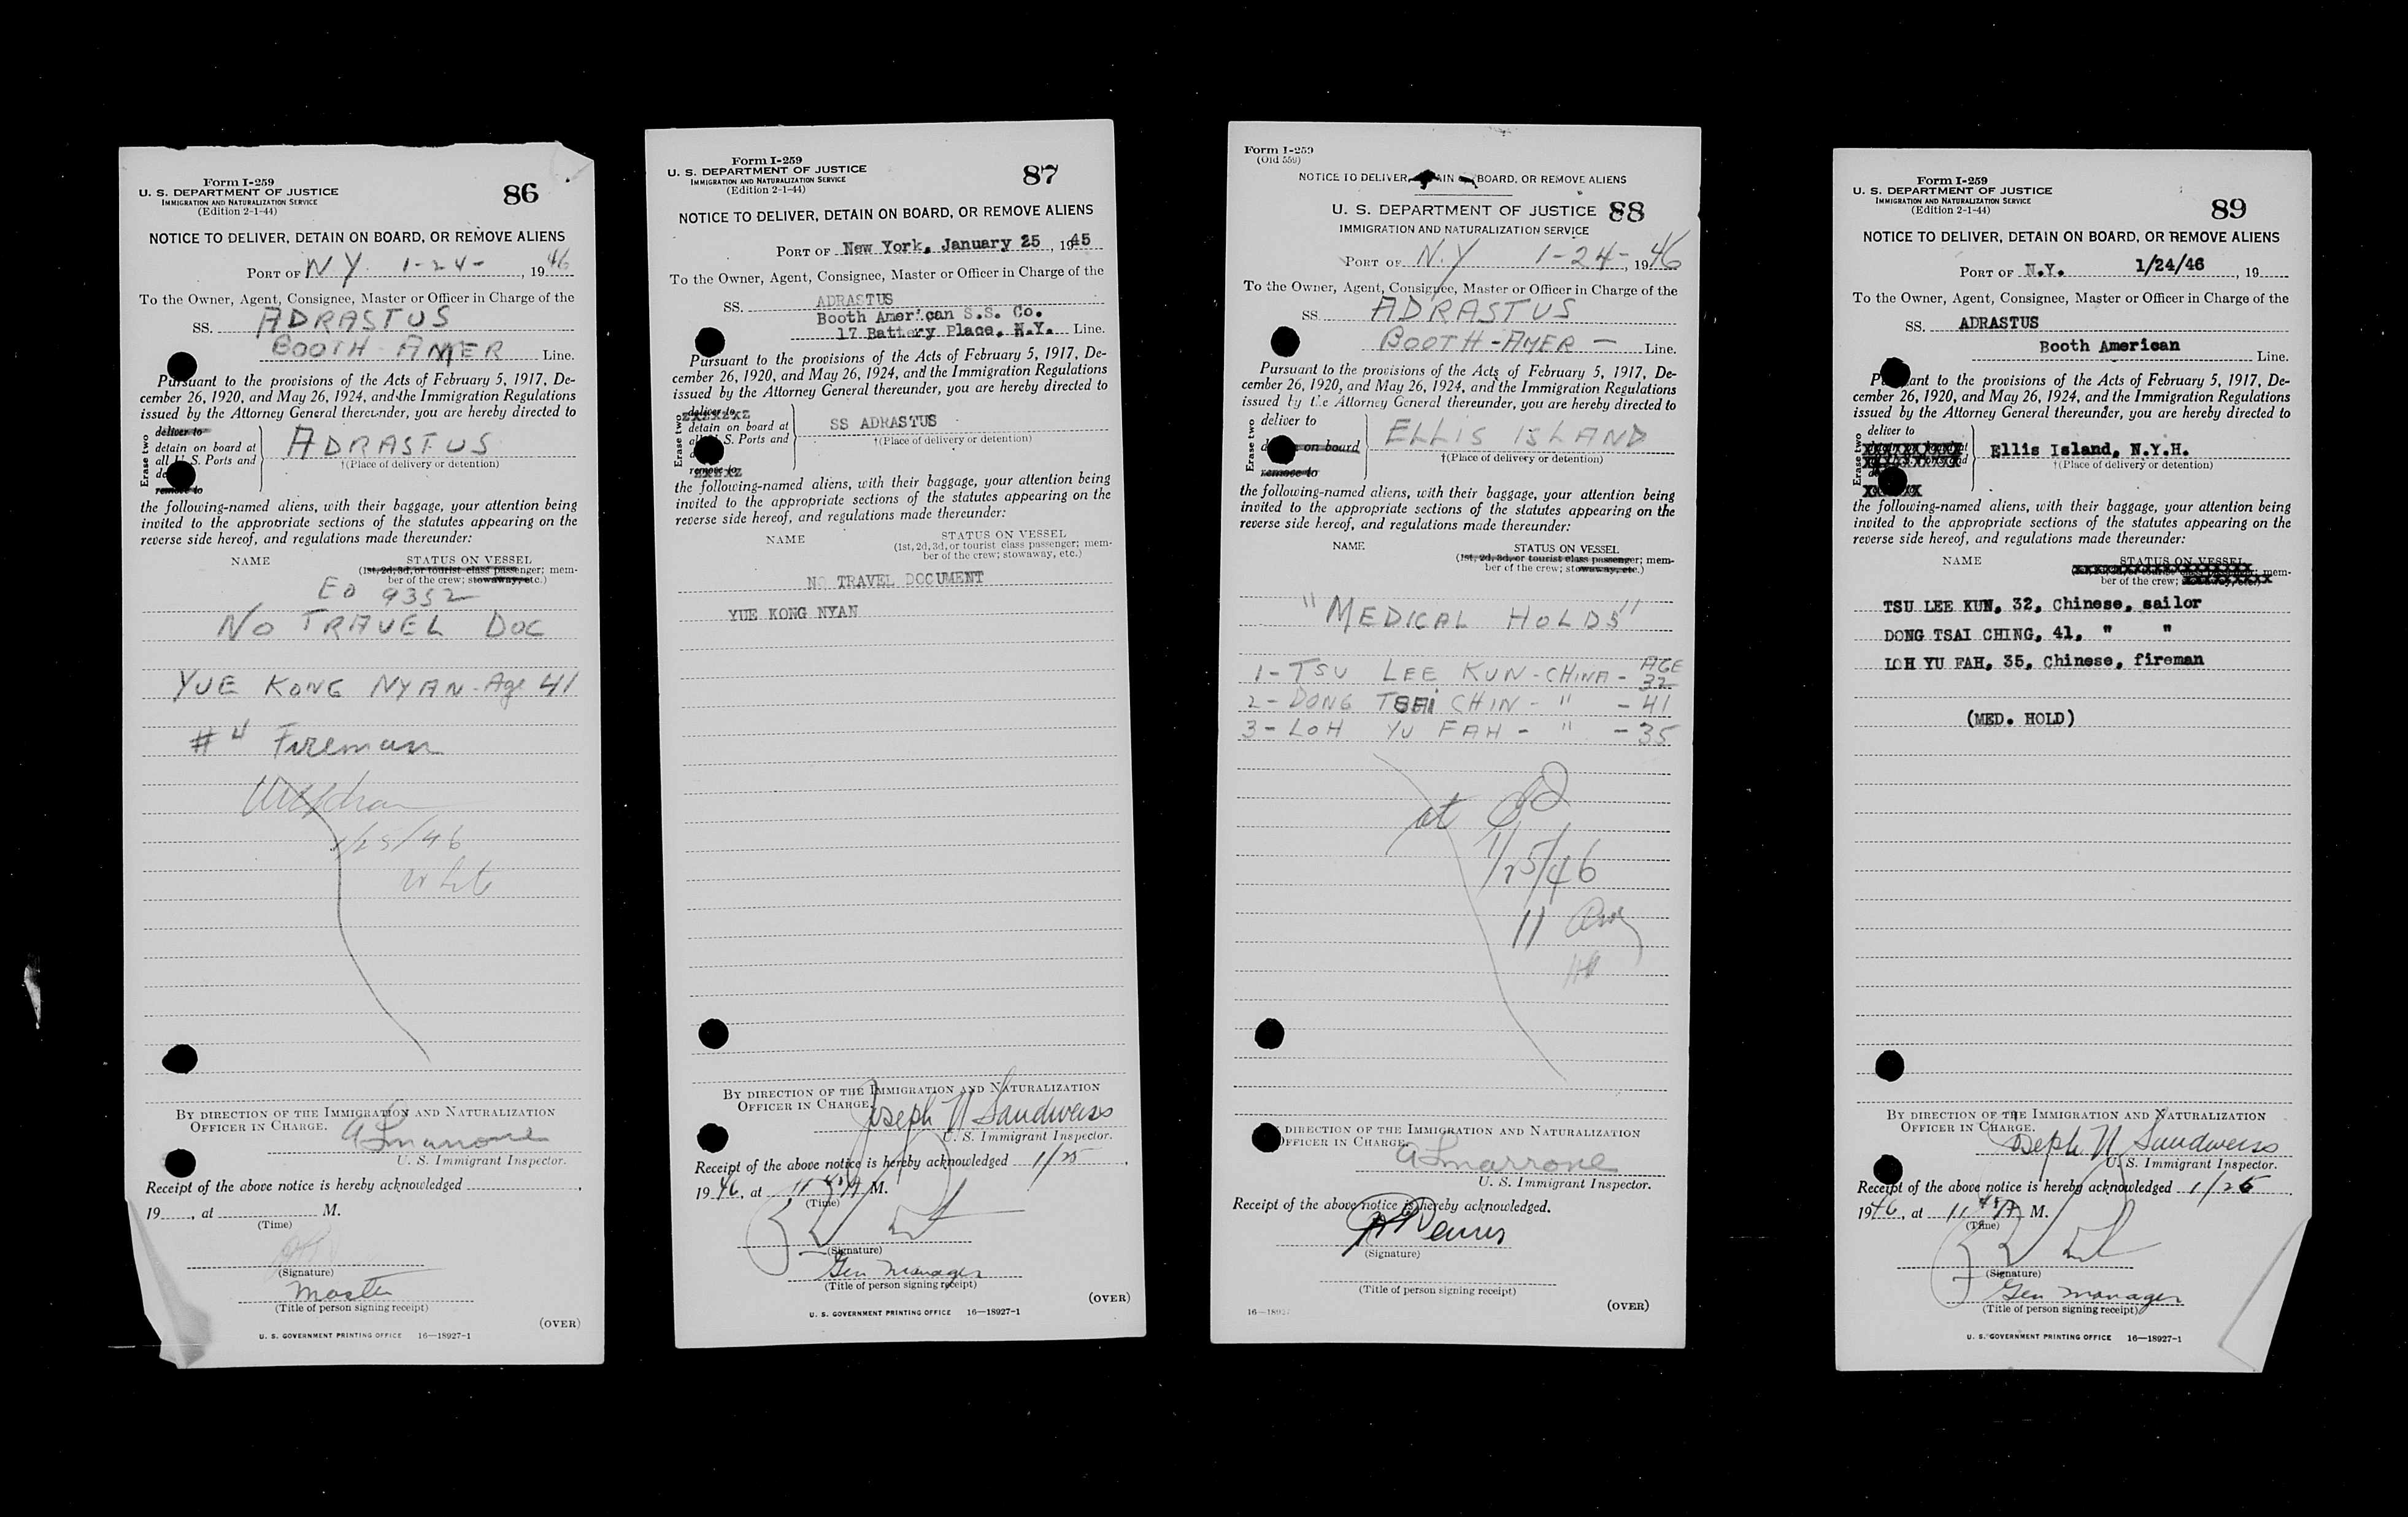 Form I-259
U. S. DEPARTMENT OF JUSTICE
IMMIGRATION AND NATURALIZATION SERVICE
(Edition 2-1-44)
86
NOTICE TO DELIVER, DETAIN ON BOARD, OR REMOVE ALIENS
PORT OF N Y. 1-24-, 1946
To the Owner, Agent, Consignee, Master or Officer in Charge of the
SS. ADRASTUS
BOOTH AMER Line.
Pursuant to the provisions of the Acts of February 5, 1917, De-
cember 26, 1920, and May 26, 1924, and the Immigration Regulations
issued by the Attorney General thereunder, you are hereby directed to
Erase two
deliver to
detain on board at
all U. S. Ports and
remove to
ADRASTUS
†(Place of delivery or detention)
the following-named aliens, with their baggage, your attention being
invited to the appropriate sections of the statutes appearing on the
reverse side hereof, and regulations made thereunder:
NAME
STATUS ON VESSEL
(1st, 2d, 3d, or tourist class passenger; mem-
ber of the crew; stowaway, etc.)
EO 9352
NO TRAVEL DOC
YUE KONG NYAN - Age 41
# 4 Fireman
1/25/46
White
BY DIRECTION OF THE IMMIGRATION AND NATURALIZATION
OFFICER IN CHARGE.
A Smarrone
U. S. Immigrant Inspector.
Receipt of the above notice is hereby acknowledged
19, at M.
(Time)
(Signature)
Master
(Title of person signing receipt)
(OVER)
U. S. GOVERNMENT PRINTING OFFICE 16—18927-1
Form I-259
U. S. DEPARTMENT OF JUSTICE
IMMIGRATION AND NATURALIZATION SERVICE
(Edition 2-1-44)
87
NOTICE TO DELIVER, DETAIN ON BOARD, OR REMOVE ALIENS
PORT OF New York, January 25, 1945
To the Owner, Agent, Consignee, Master or Officer in Charge of the
SS. ADRASTUS
Booth American S.S. Co.
17 Battery Place, N.Y. Line.
Pursuant to the provisions of the Acts of February 5, 1917, De-
cember 26, 1920, and May 26, 1924, and the Immigration Regulations
issued by the Attorney General thereunder, you are hereby directed to
Erase two
deliver to
detain on board at
all U. S. Ports and
remove to
SS ADRASTUS
†(Place of delivery or detention)
the following-named aliens, with their baggage, your attention being
invited to the appropriate sections of the statutes appearing on the
reverse side hereof, and regulations made thereunder:
NAME
STATUS ON VESSEL
(1st, 2d, 3d, or tourist class passenger; mem-
ber of the crew; stowaway, etc.)
NO TRAVEL DOCUMENT
YUE KONG NYAN
BY DIRECTION OF THE IMMIGRATION AND NATURALIZATION
OFFICER IN CHARGE.
Joseph N Sandweiss
U. S. Immigrant Inspector.
Receipt of the above notice is hereby acknowledged 1/25,
1946, at 11 45 A M.
(Time)
(Signature)
Gen Manager
(Title of person signing receipt)
(OVER)
U. S. GOVERNMENT PRINTING OFFICE 16—18927-1
Form I-259
(Old 559)
NOTICE TO DELIVER, BOARD, OR REMOVE ALIENS
U. S. DEPARTMENT OF JUSTICE 88
IMMIGRATION AND NATURALIZATION SERVICE
PORT OF N.Y 1-24-, 1946
To the Owner, Agent, Consignee, Master or Officer in Charge of the
SS. ADRASTUS
BOOTH-AMER — Line.
Pursuant to the provisions of the Acts of February 5, 1917, De-
cember 26, 1920, and May 26, 1924, and the Immigration Regulations
issued by the Attorney General thereunder, you are hereby directed to
Erase two
deliver to
on board
remove to
ELLIS ISLAND
†(Place of delivery or detention)
the following-named aliens, with their baggage, your attention being
invited to the appropriate sections of the statutes appearing on the
reverse side hereof, and regulations made thereunder:
NAME
STATUS ON VESSEL
(1st, 2d, 3d, or tourist class passenger; mem-
ber of the crew; stowaway, etc.)
"MEDICAL HOLDS"
AGE
1 - TSU LEE KUN - CHINA - 32
2 - DONG TSAI CHIN - " - 41
3 - LOH YU FAH - " - 35
at
1/25/46
11
BY DIRECTION OF THE IMMIGRATION AND NATURALIZATION
OFFICER IN CHARGE.
A Smarrone
U. S. Immigrant Inspector.
Receipt of the above notice is hereby acknowledged.
(Signature)
(Title of person signing receipt)
(OVER)
Form I-259
U. S. DEPARTMENT OF JUSTICE
IMMIGRATION AND NATURALIZATION SERVICE
(Edition 2-1-44)
89
NOTICE TO DELIVER, DETAIN ON BOARD, OR REMOVE ALIENS
PORT OF N.Y. 1/24/46, 19
To the Owner, Agent, Consignee, Master or Officer in Charge of the
SS. ADRASTUS
Booth American Line.
Pursuant to the provisions of the Acts of February 5, 1917, De-
cember 26, 1920, and May 26, 1924, and the Immigration Regulations
issued by the Attorney General thereunder, you are hereby directed to
Erase two
deliver to
Ellis Island, N.Y.H.
†(Place of delivery or detention)
the following-named aliens, with their baggage, your attention being
invited to the appropriate sections of the statutes appearing on the
reverse side hereof, and regulations made thereunder:
NAME
STATUS ON VESSEL
mem-
ber of the crew;
TSU LEE KUN, 32, Chinese, sailor
DONG TSAI CHING, 41, " "
LOH YU FAH, 35, Chinese, fireman
(MED. HOLD)
BY DIRECTION OF THE IMMIGRATION AND NATURALIZATION
OFFICER IN CHARGE.
Joseph N Sandweiss
U. S. Immigrant Inspector.
Receipt of the above notice is hereby acknowledged 1/25,
1946, at 11 45 A M.
(Time)
(Signature)
Gen Manager
(Title of person signing receipt)
U. S. GOVERNMENT PRINTING OFFICE 16—18927-1